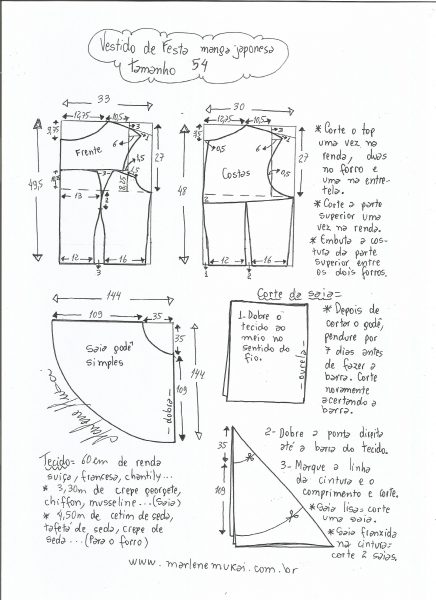 Vestido de Festa manga japonesa
tamanho 54
33
12,75
10,5
3
6
27
4,5
4,5
18,25
3
Frente
49,5
13
2
12
16
3
30
12,75
10,5
3
2
6
0,5
27
0,5
Costas
48
12
16
1
2
* Corte o top
uma vez na
renda, duas
no forro e
uma na entre-
tela.
* Corte a parte
superior uma
vez na renda.
* Embuta a cos-
tura da parte
superior entre
os dois forros.
144
109
35
35
144
109
Saia godê
simples
- dobra -
Marlene Mukai
Corte da saia=
1- Dobre o
tecido ao
meio no
sentido do
fio.
- ourela -
* Depois de
cortar o godê,
pendure por
7 dias antes
de fazer a
barra. Corte
novamente
acertando a
barra.
35
109
2- Dobre a ponta direita
até a barra do tecido.
3- Marque a linha
da cintura e o
comprimento e corte.
* Saia lisa= corte
uma saia.
* Saia franzida
na cintura=
corte 2 saias.
Tecido= 60cm de renda
suiça, francesa, chantily...
* 3,30m de crepe georgete,
chiffon, musseline...(Saia)
* 4,50m de cetim de seda,
tafetá de seda, crepe de
seda...(Para o forro)
www.marlenemukai.com.br